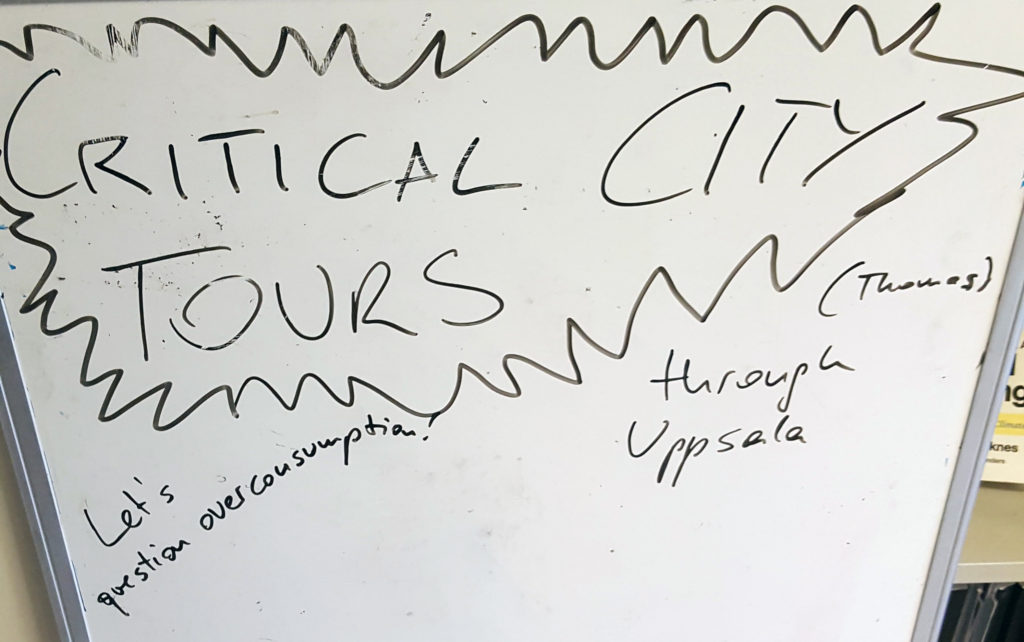 CRITICAL CITY
TOURS
(Thomas)
through
Uppsala
Let's
question overconsumption!
knes